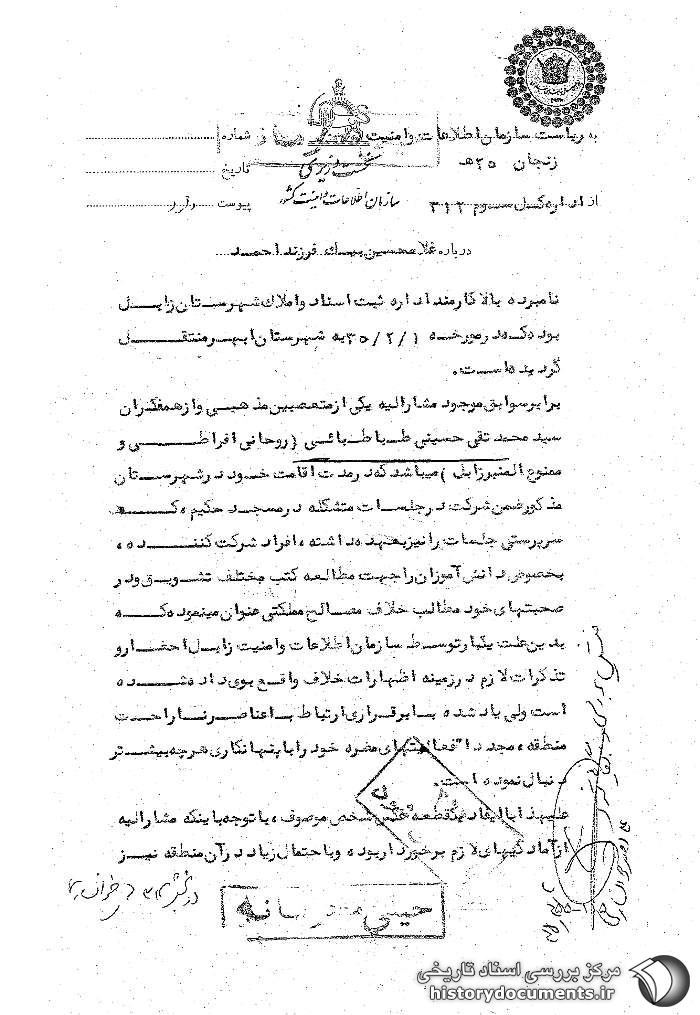 به ریاست سازمان اطلاعات و امنیت
شماره
زنجان ۲۵ هـ
تاریخ
نخست وزیری
سازمان اطلاعات و امنیت کشور
از اداره کل سوم ۳۱۲
پیوست دارد
درباره غلامحسین فرزند احمد
نامبرده بالا کارمند اداره ثبت اسناد و املاک شهرستان زابل
بوده که در مورخه ۳۵/۲/۱ به شهرستان ابهر منتقل
گردیده است.
برابر سوابق موجود مشارالیه یکی از متعصبین مذهبی و از همفکران
سید محمد تقی حسینی طباطبائی (روحانی افراطی و
ممنوع المنبر زابل) میباشد که در مدت اقامت خود در شهرستان
مذکور ضمن شرکت در جلسات متشکله در مسجد حکیم، که
سرپرستی جلسات را نیز بعهده داشته، افراد شرکت کننده،
بخصوص دانش آموزان را جهت مطالعه کتب مختلف تشویق و در
صحبتهای خود مطالب خلاف مصالح مملکتی عنوان مینموده که
بدین علت یکبار توسط سازمان اطلاعات و امنیت زابل احضار و
تذکرات لازم در زمینه اظهارات خلاف واقع بوی داده شده
است ولی یاد شده با برقراری ارتباط با عناصر ناراحت
منطقه، مجددا" فعالیتهای مضره خود را با پنهانکاری هرچه بیشتر
دنبال نموده است.
علیهذا با ایفاد یکقطعه عکس شخص موصوف، با توجه باینکه مشارالیه
از آمادگیهای لازم برخوردار بوده و با احتمال زیاد در آن منطقه نیز
خیلی محرمانه
مرکز بررسی اسناد تاریخی
historydocuments.ir